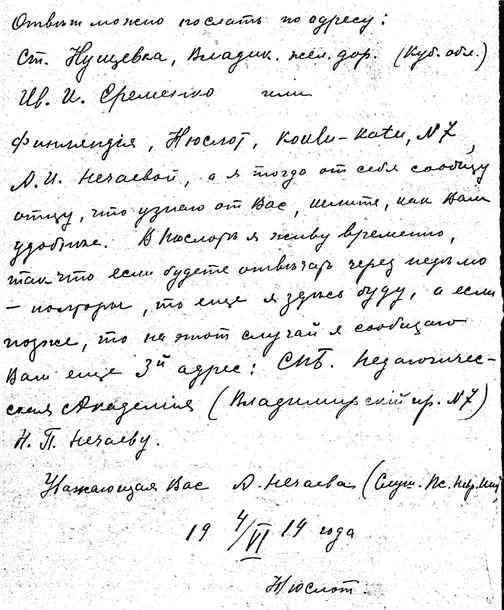 Отвѣт можно послать по адресу:
Ст. Кущевка, Владик. жел. дор. (Куб. обл.)
Ив. И. Еременко или
Финляндія, Нюслот, Koulu-Katu, N 7,
А. И. Нечаевой, а я тогда от себя сообщу
отцу, что узнаю от Вас, шлите, как Вам
удобнѣе. В Нюслотѣ я живу временно,
так что если будете отвѣчать через недѣлю
– полторы, то еще я здѣсь буду, а если
позже, то на этот случай я сообщаю
Вам еще 3й адрес: СПБ. Педагогичес-
ская Академія (Владимирскій пр. N 7)
Н. П. Нечаеву.
Уважающая Вас А. Нечаева (Слуш. Пс. Нев. Инст.)
19 4/VI 14 года
Нюслот.